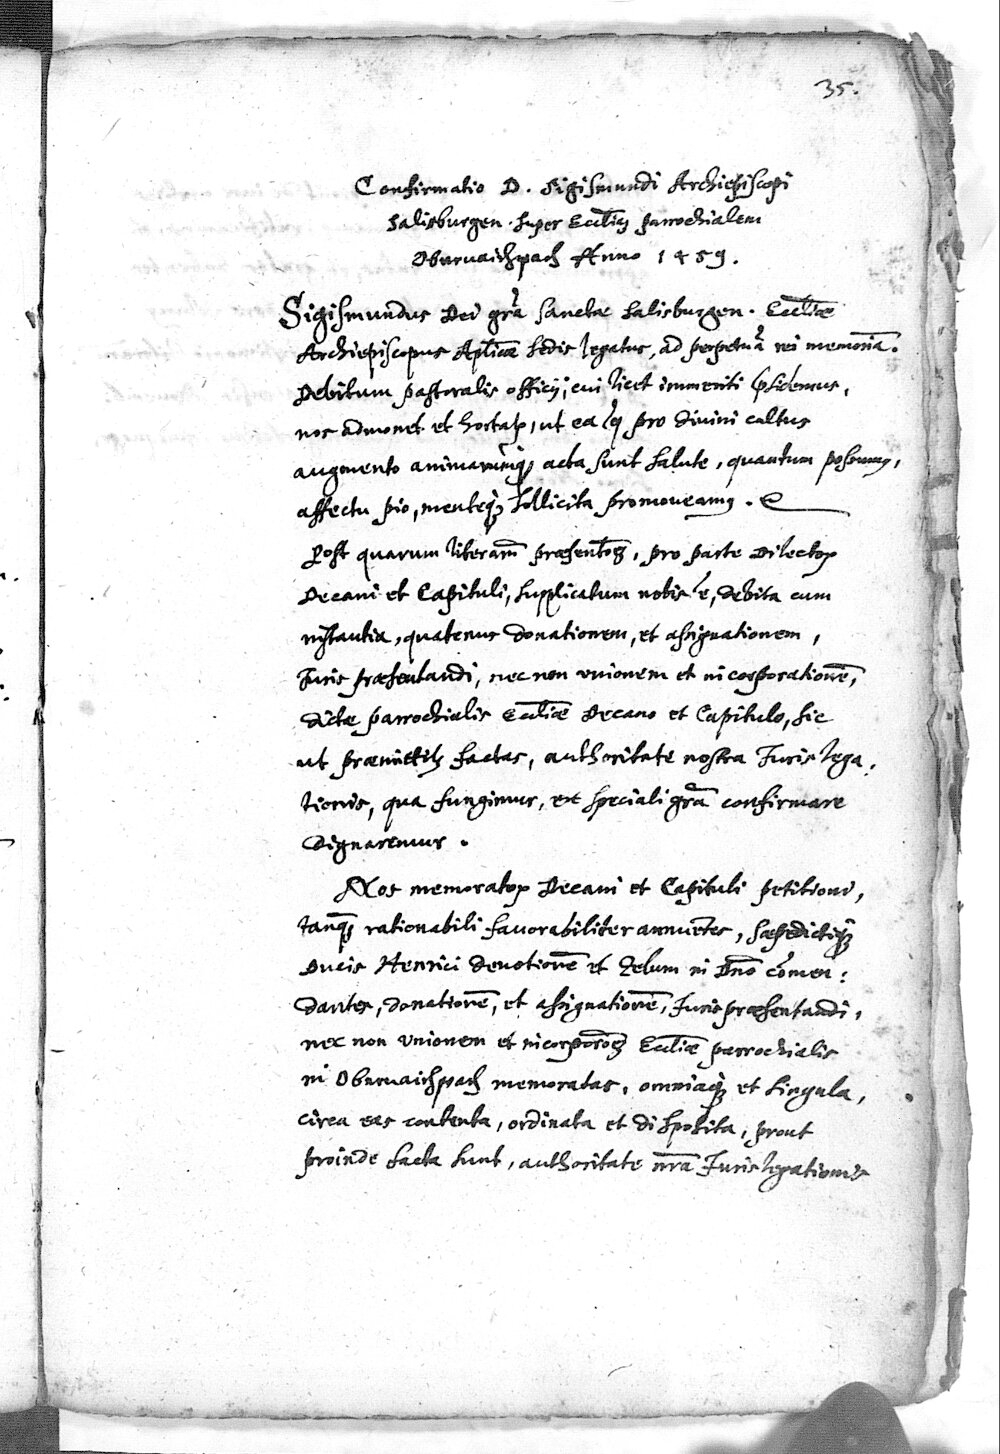 35.
Confirmatio D. Sigismundi Archiepiscopi
Salisburgen. super Ecctia parrochialem
Oberuaichpach Anno 1459.
Sigismundus Dei gra sanctae Salisburgen. Eccliae
Archiepiscopus Aplicae Sedis legatus, ad perpetua rei memoria.
Debitum pastoralis officij, cui licet immeriti psidemus,
nos admonet et hortat, ut ea q pro divini cultus
augmento animarumq acta sunt salute, quantum possumus,
affectu pio, menteq sollicita promoveamus.
Post quarum literarum praesentoem, pro parte Dilector
Decani et Capituli, supplicatum nobis e, debita cum
instantia, quatenus donationem, et assignationem,
Juris praesentandi, nec non unionem et incorporatione,
dictae parrochialis Eccliae Decano et Capitulo, sic
ut praemittit factas, authoritate nostra Juris lega,
tionis, qua fungimur, ex speciali gra confirmare
Dignaremur.
Nos memorator Decani et Capituli petitioni,
tanq rationabili fauorabiliter annuetes, saepedictiq
Ducis Henrici devotione et zelum in Dno comen:
dantes, donatione, et assignatione, Juris praesentandi,
nec non unionem et incorporoem Eccliae parrochialis
in Oberuaichpach memoratas, omniaq et singula,
circa eas contenta, ordinata et disposita, prout
proinde facta sunt, authoritate nra Juris legationis